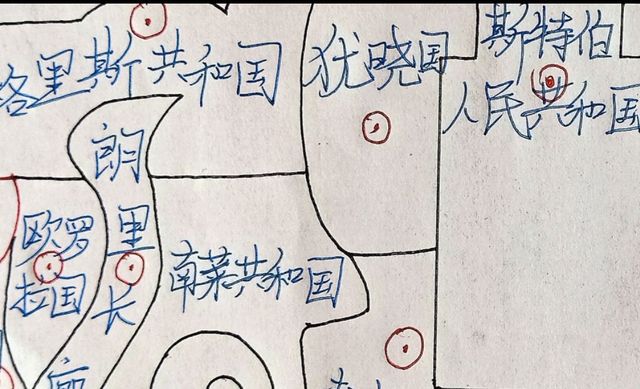 格里斯共和国
犹晓国
斯特伯
人民共和国
朗里长廊
欧罗
拉国
南莱共和国